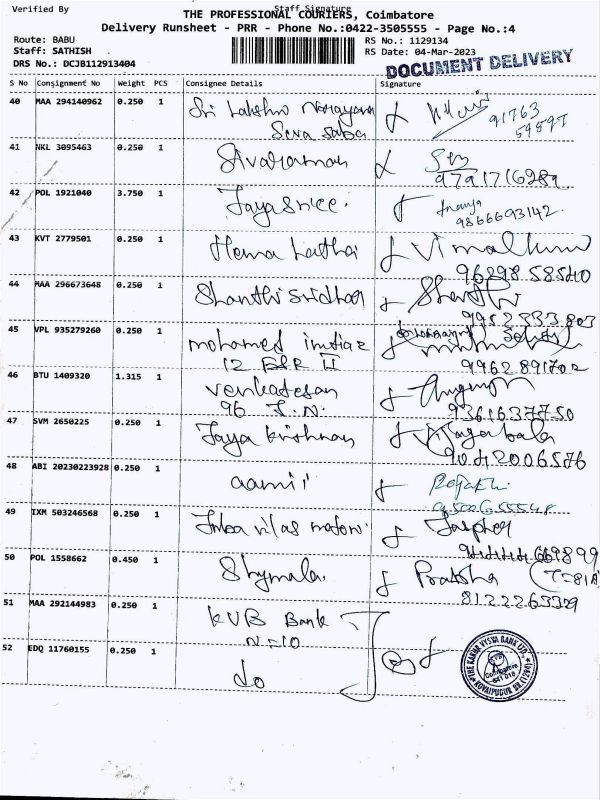 Verified By
Staff Signature
THE PROFESSIONAL COURIERS, Coimbatore
Delivery Runsheet - PRR - Phone No.:0422-3505555 - Page No.:4
Route: BABU
RS No.: 1129134
Staff: SATHISH
RS Date: 04-Mar-2023
DRS No.: DCJB112913404
DOCUMENT DELIVERY
S No Consignment No Weight PCS Consignee Details Signature
40 MAA 294140962 0.250 1 Sri Lakshmi Narayana
91763
Seva Saba
59597
41 NKL 3095463 0.250 1 Sivaraman
9791716989
42 POL 1921040 3.750 1 Jayasree.
9866693142
43 KVT 2779501 0.250 1 Hema Latha
96298 58540
44 MAA 296673648 0.250 1 Shanthi Sridhar
9952533803
45 VPL 935279260 0.250 1 mohamed imtiaz
12 II
9962891702
46 BTU 1409320 1.315 1 venkatesan
96 J.N.
9361637750
47 SVM 2650225 0.250 1 Jaya Krishnan
9042006576
48 ABI 20230223928 0.250 1 aamir
49 IXM 503246568 0.250 1
50 POL 1558662 0.450 1 Shymala Pratsha
8122265329
51 MAA 292144983 0.250 1 KVB Bank
N=10
52 EDQ 11760155 0.250 1 do
THE KARUR VYSYA BANK LTD.
Coimbatore
641 018
KOVAIPUDUR BR.(1294)